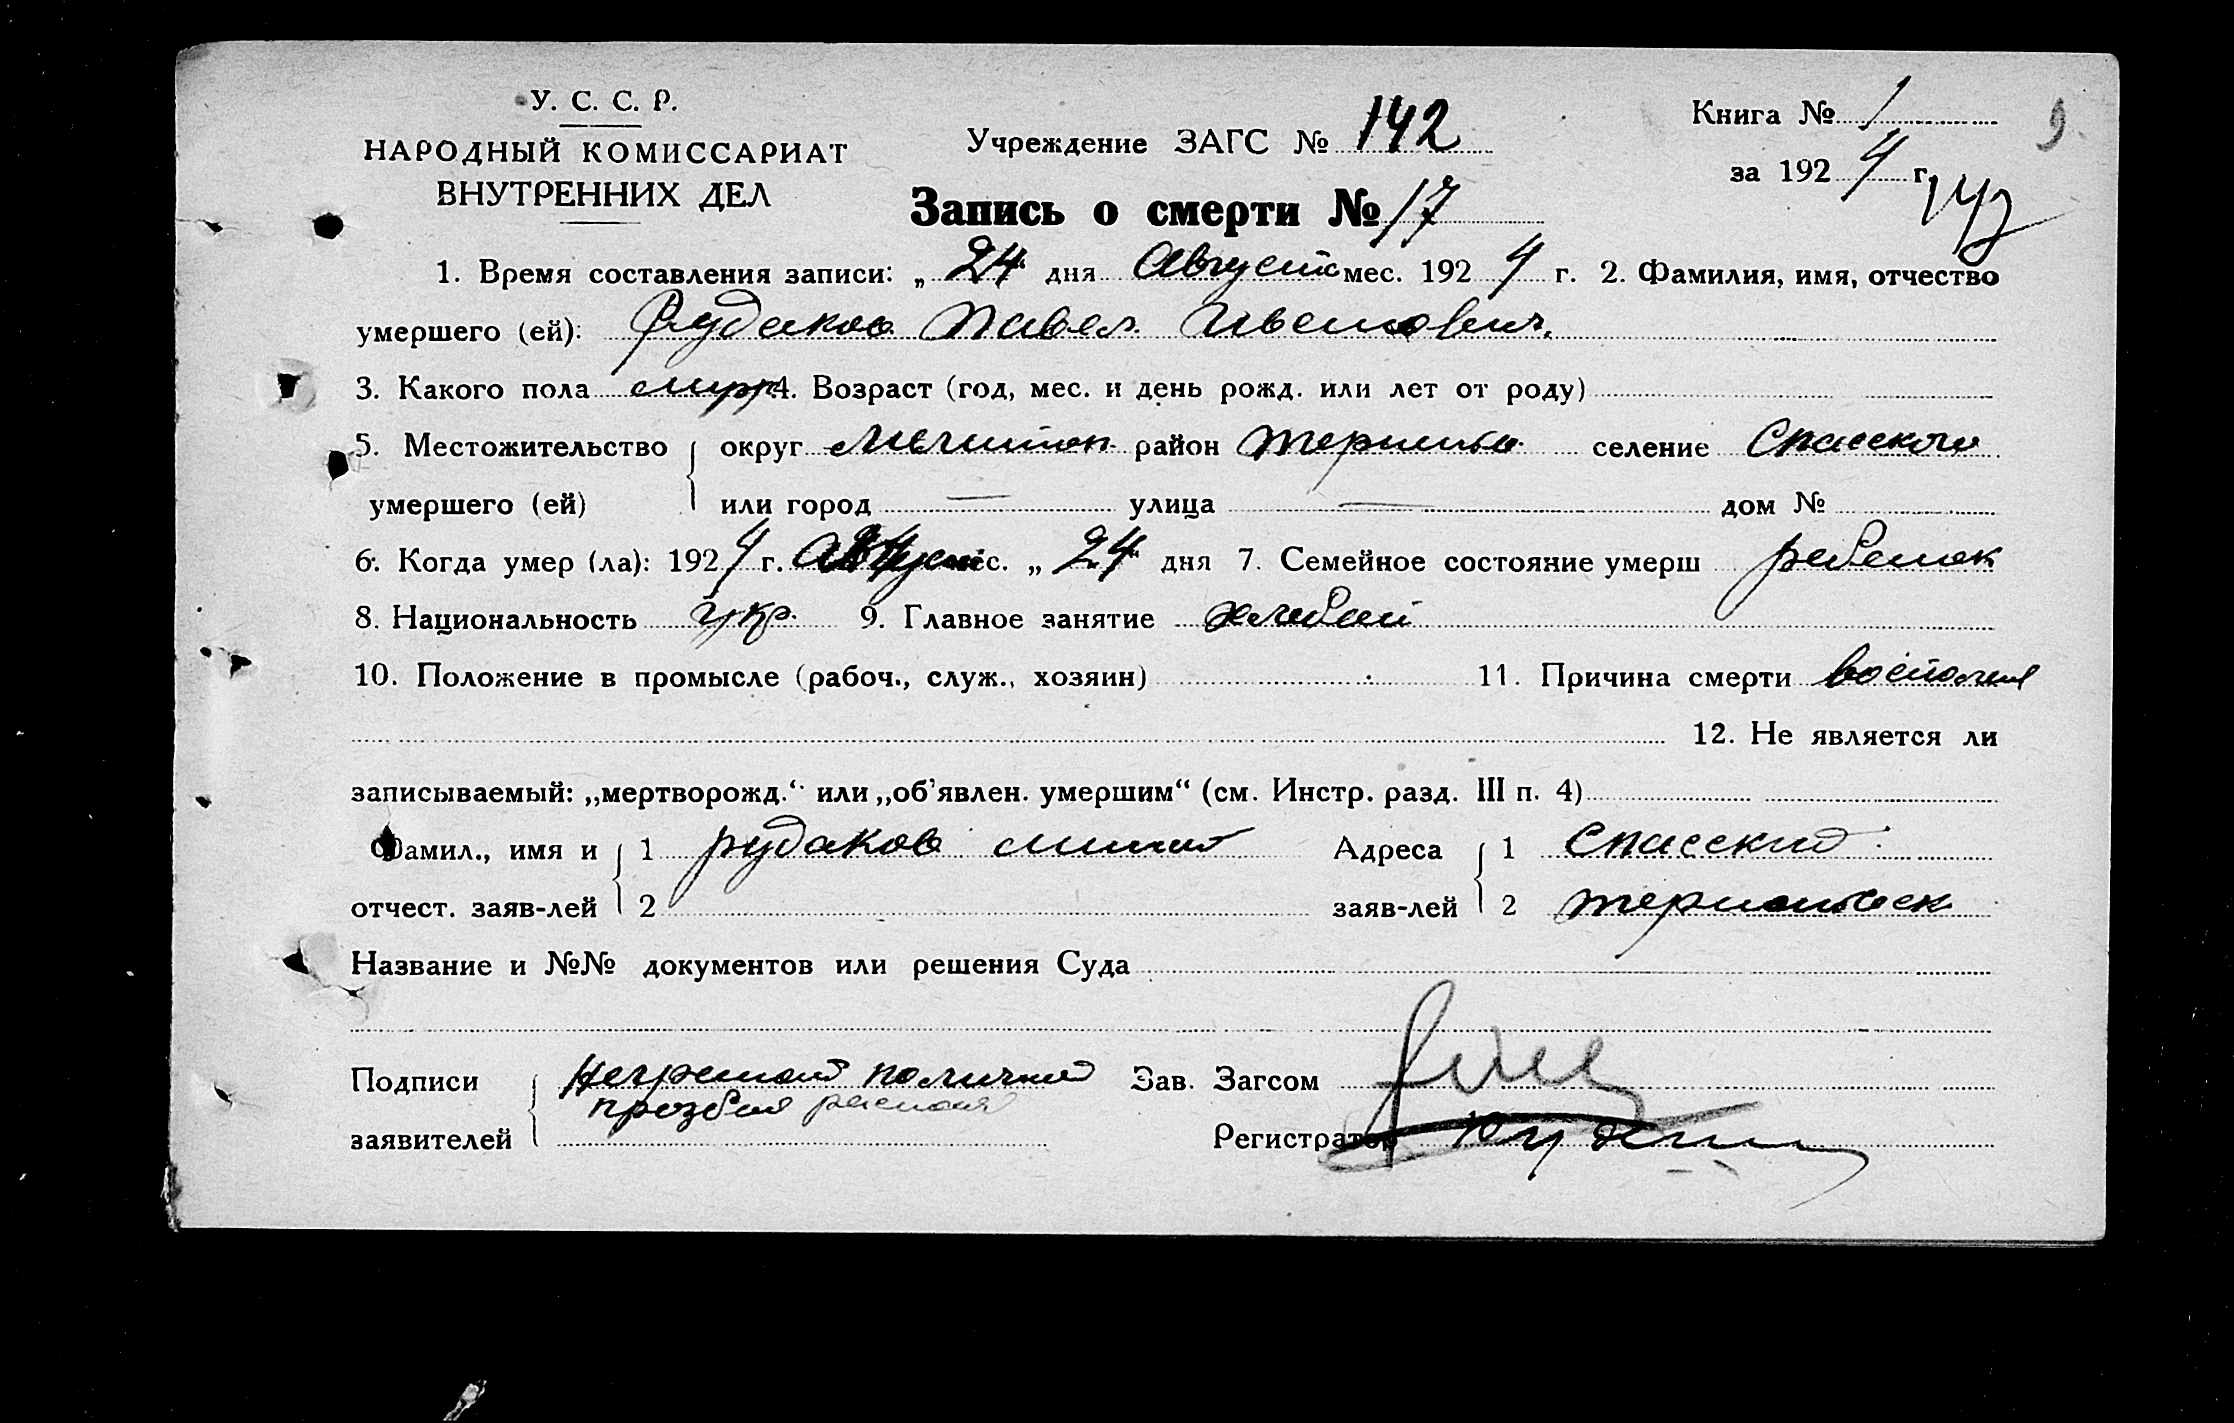 У. С. С. Р.
НАРОДНЫЙ КОМИССАРИАТ
ВНУТРЕННИХ ДЕЛ
Учреждение ЗАГС № 142
Книга № 1
за 1924 г.
142
Запись о смерти № 17
1. Время составления записи: „24“ дня Август мес. 1924 г. 2. Фамилия, имя, отчество
умершего (ей): Рудаков Павел Иванович.
3. Какого пола 4. Возраст (год, мес. и день рожд. или лет от роду)
5. Местожительство округ район селение Спасского
умершего (ей) или город — улица — дом №
6. Когда умер (ла): 1924 г. Август мес. „24“ дня 7. Семейное состояние умерш ребенок
8. Национальность укр. 9. Главное занятие
10. Положение в промысле (рабоч., служ., хозяин) 11. Причина смерти
12. Не является ли
записываемый: „мертворожд.“ или „об’явлен. умершим“ (см. Инстр. разд. III п. 4)
Фамил., имя и 1 рудаков Адреса 1 Спасский
отчест. заяв-лей 2 заяв-лей 2
Название и №№ документов или решения Суда
Подписи Зав. Загсом
заявителей Регистратор